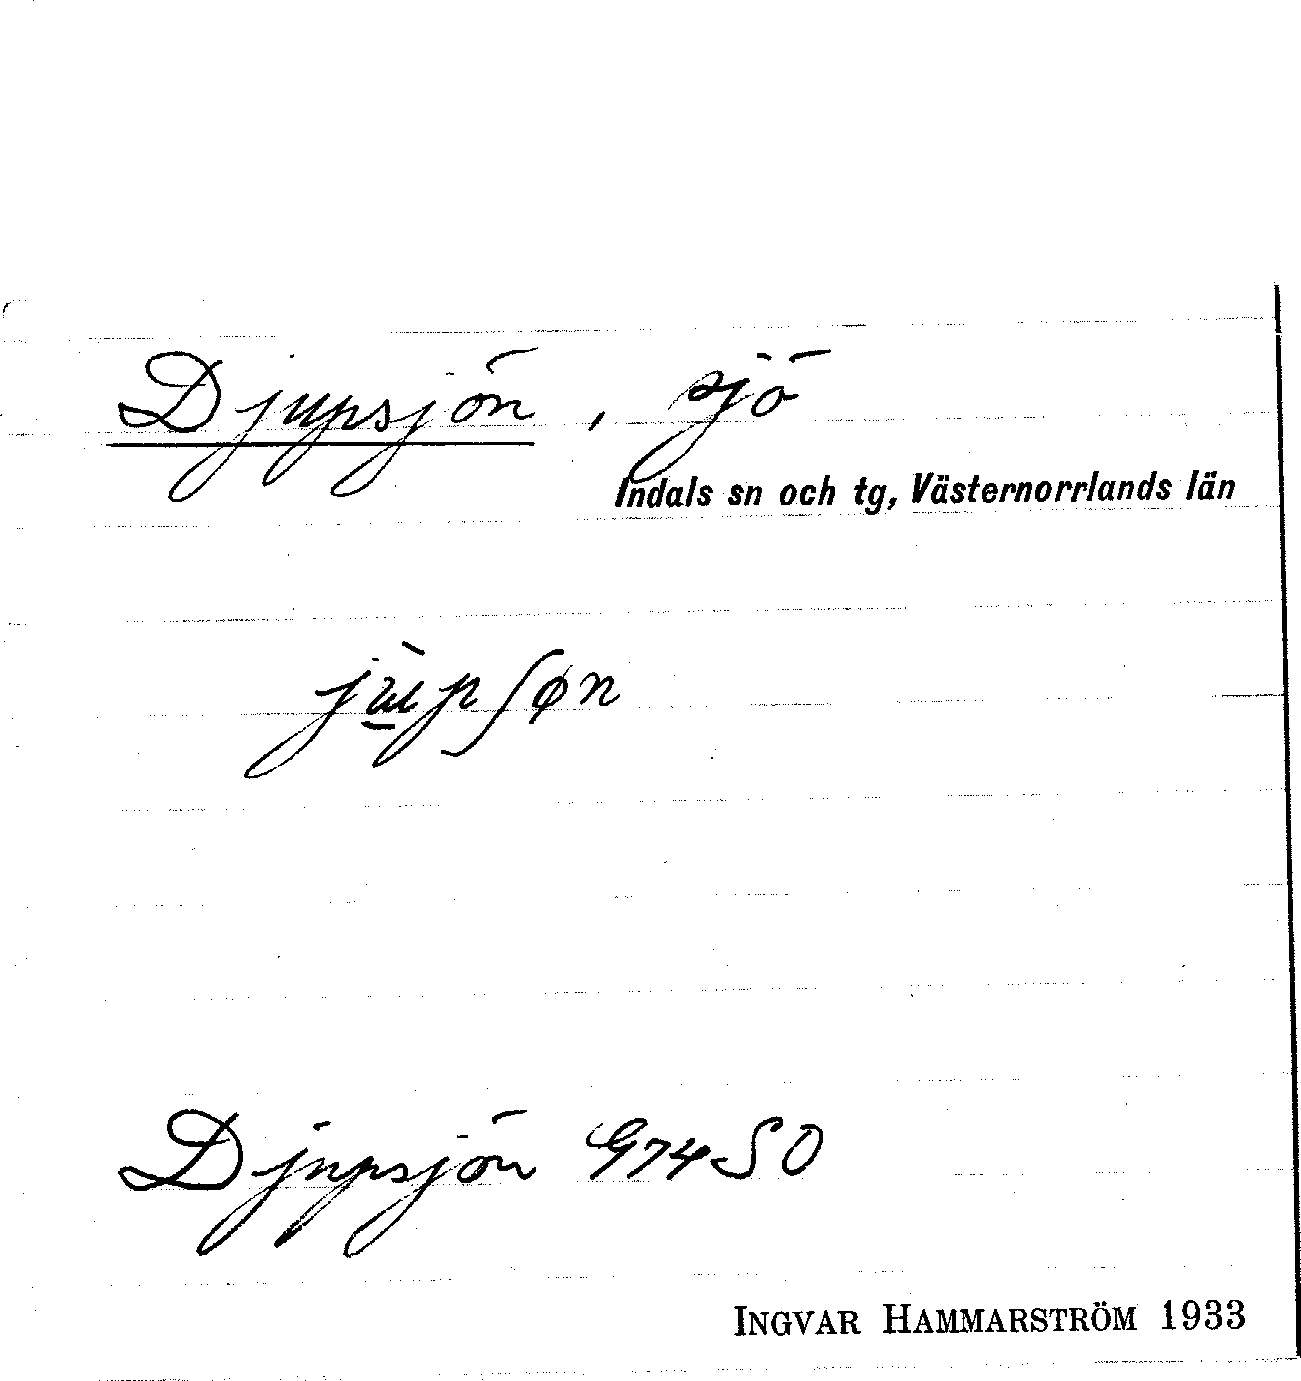 Djupsjön, sjö
Indals sn och tg, Västernorrlands län
Djupsjön G74SO
INGVAR HAMMARSTRÖM 1933